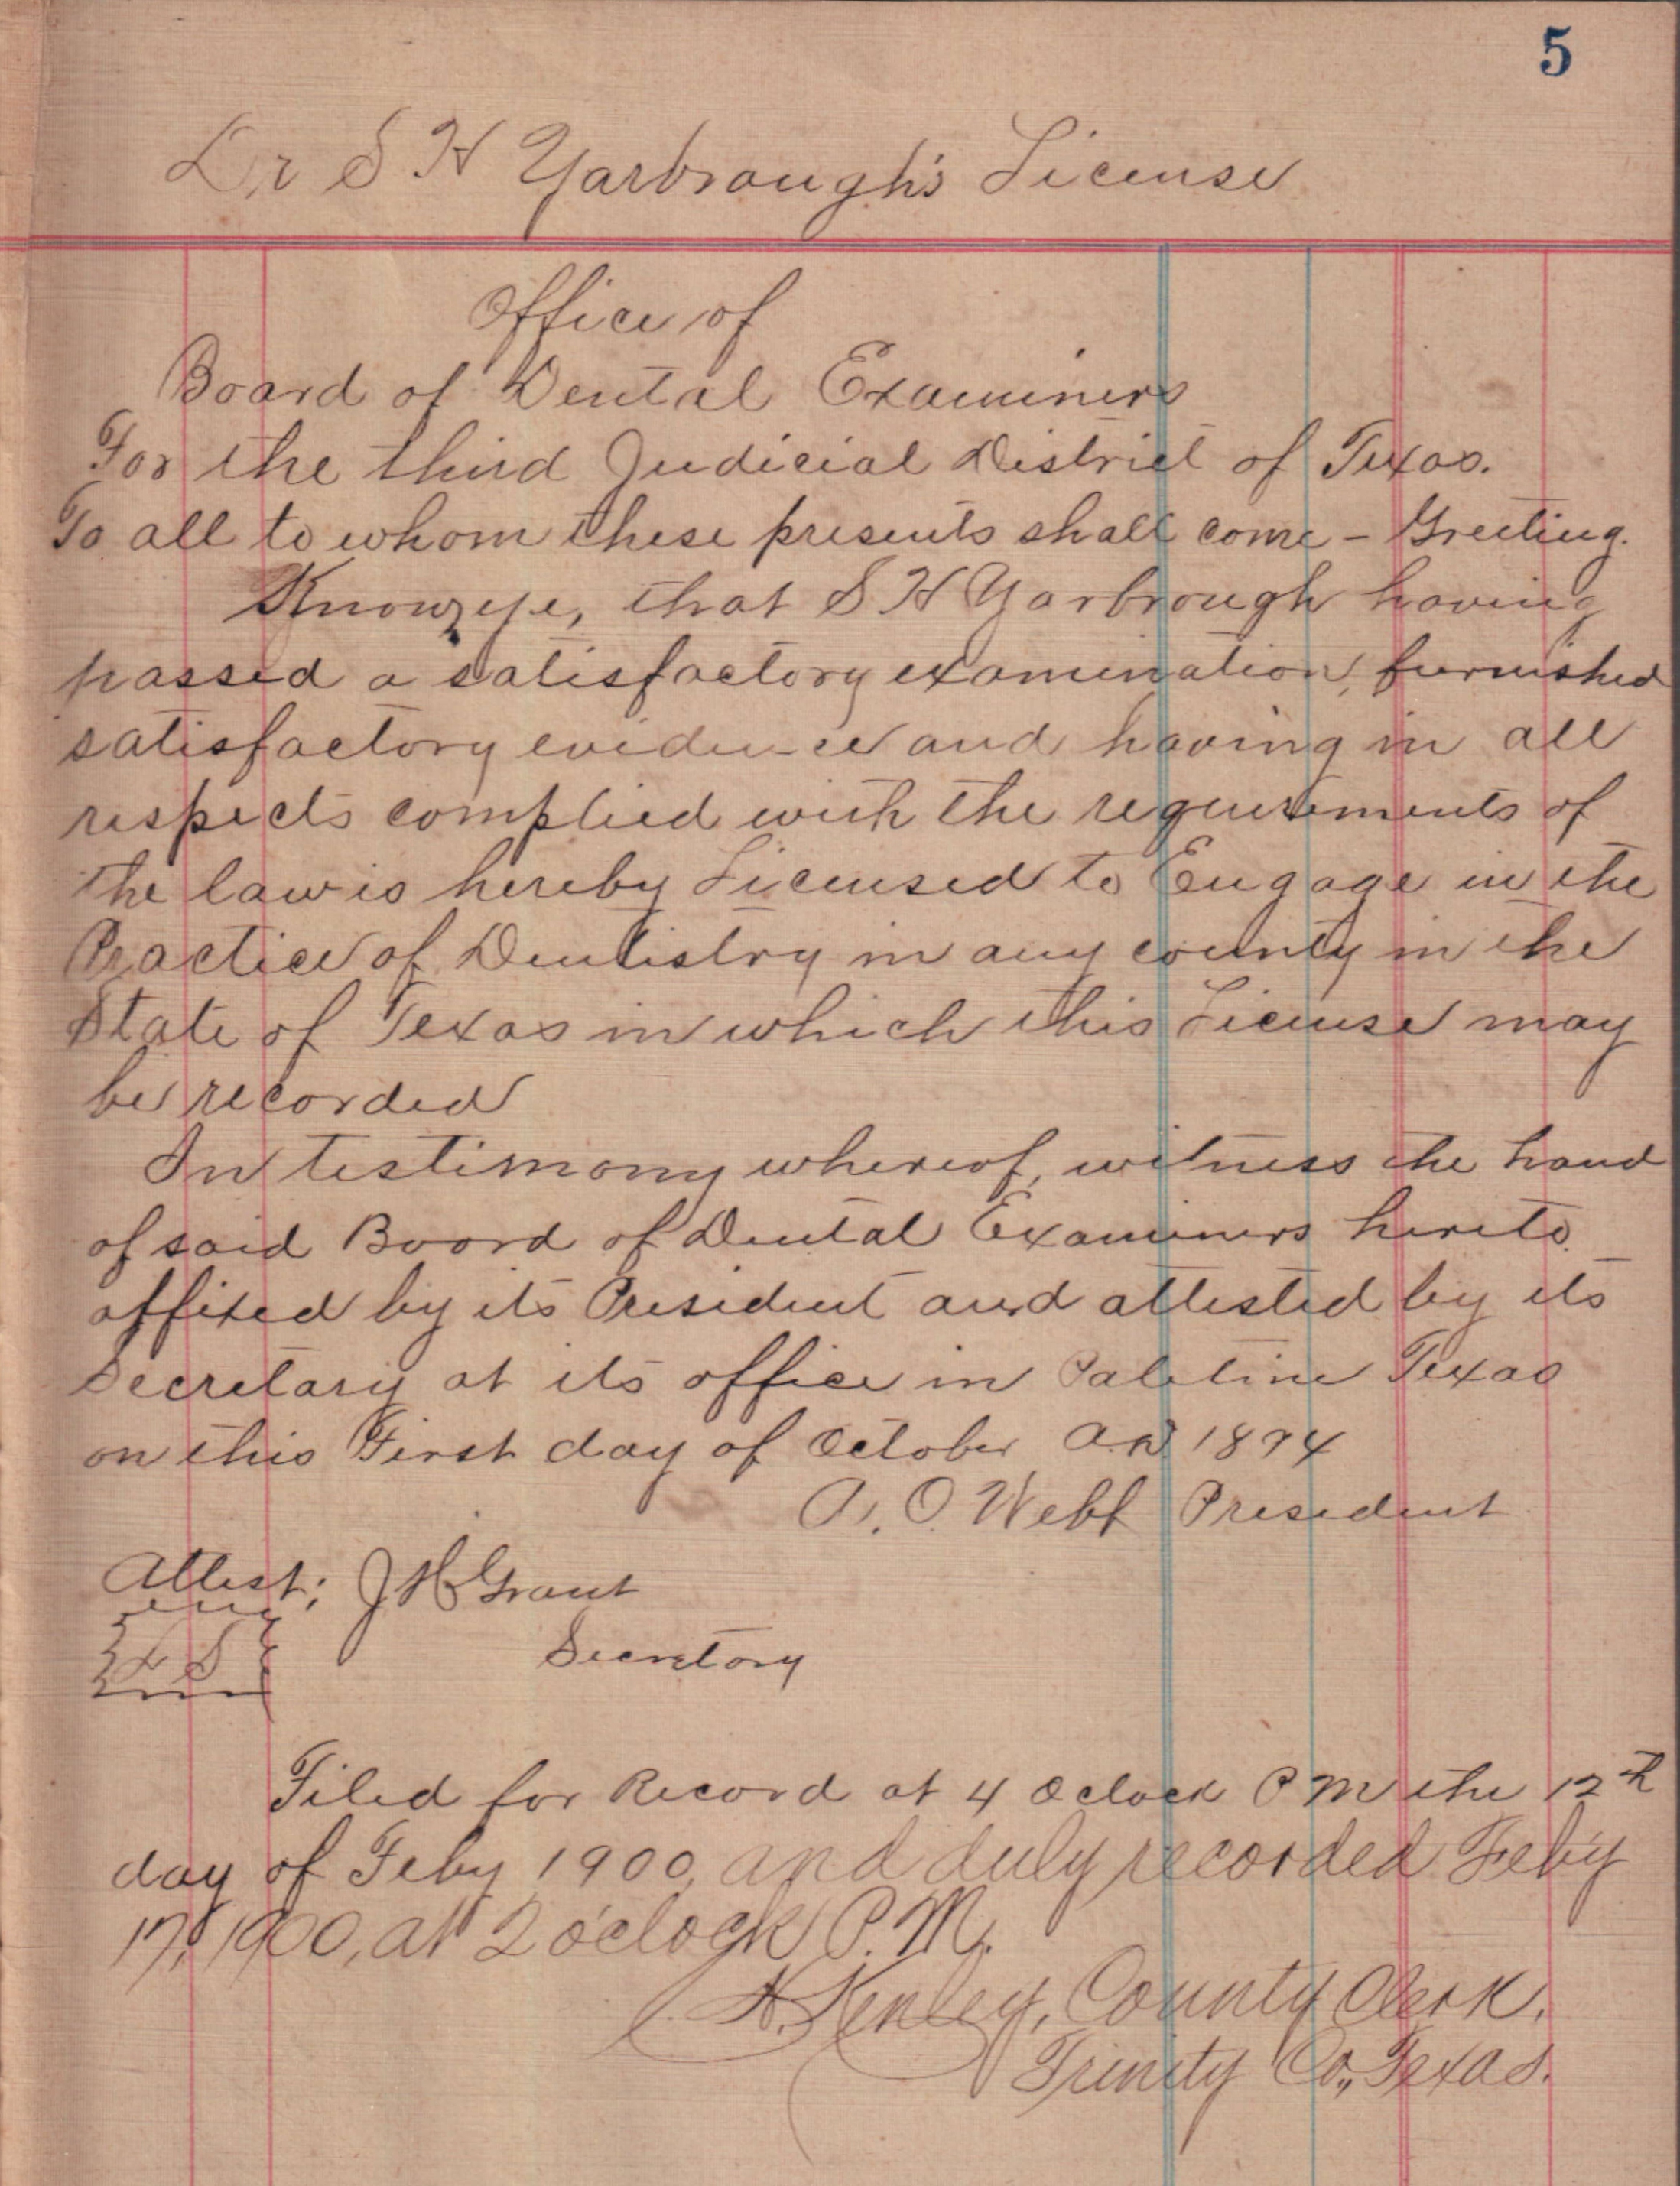 5
Dr S H Yarbrough's License
Office of
Board of Dental Examiners
For the third Judicial District of Texas.
To all to whom these presents shall come - Greeting.
Know ye, that S H Yarbrough having
passed a satisfactory examination, furnished
satisfactory evidence and having in all
respects complied with the requirements of
the law is hereby Licensed to Engage in the
Practice of Dentistry in any county in the
State of Texas in which this License may
be recorded
In testimony whereof, witness the hand
of said Board of Dental Examiners hereto
affixed by its President and attested by its
Secretary at its office in Paletine Texas
on this First day of October A.D. 1894
A. O. Webb President
Attest; J H Grant
L S
Secretary
Filed for Record at 4 Oclock P M the 12th
day of Feby 1900, and duly recorded Feb'y
17, 1900, at 2 o'clock P.M.
H. Kenley, County Clerk.
Trinity Co., Texas.